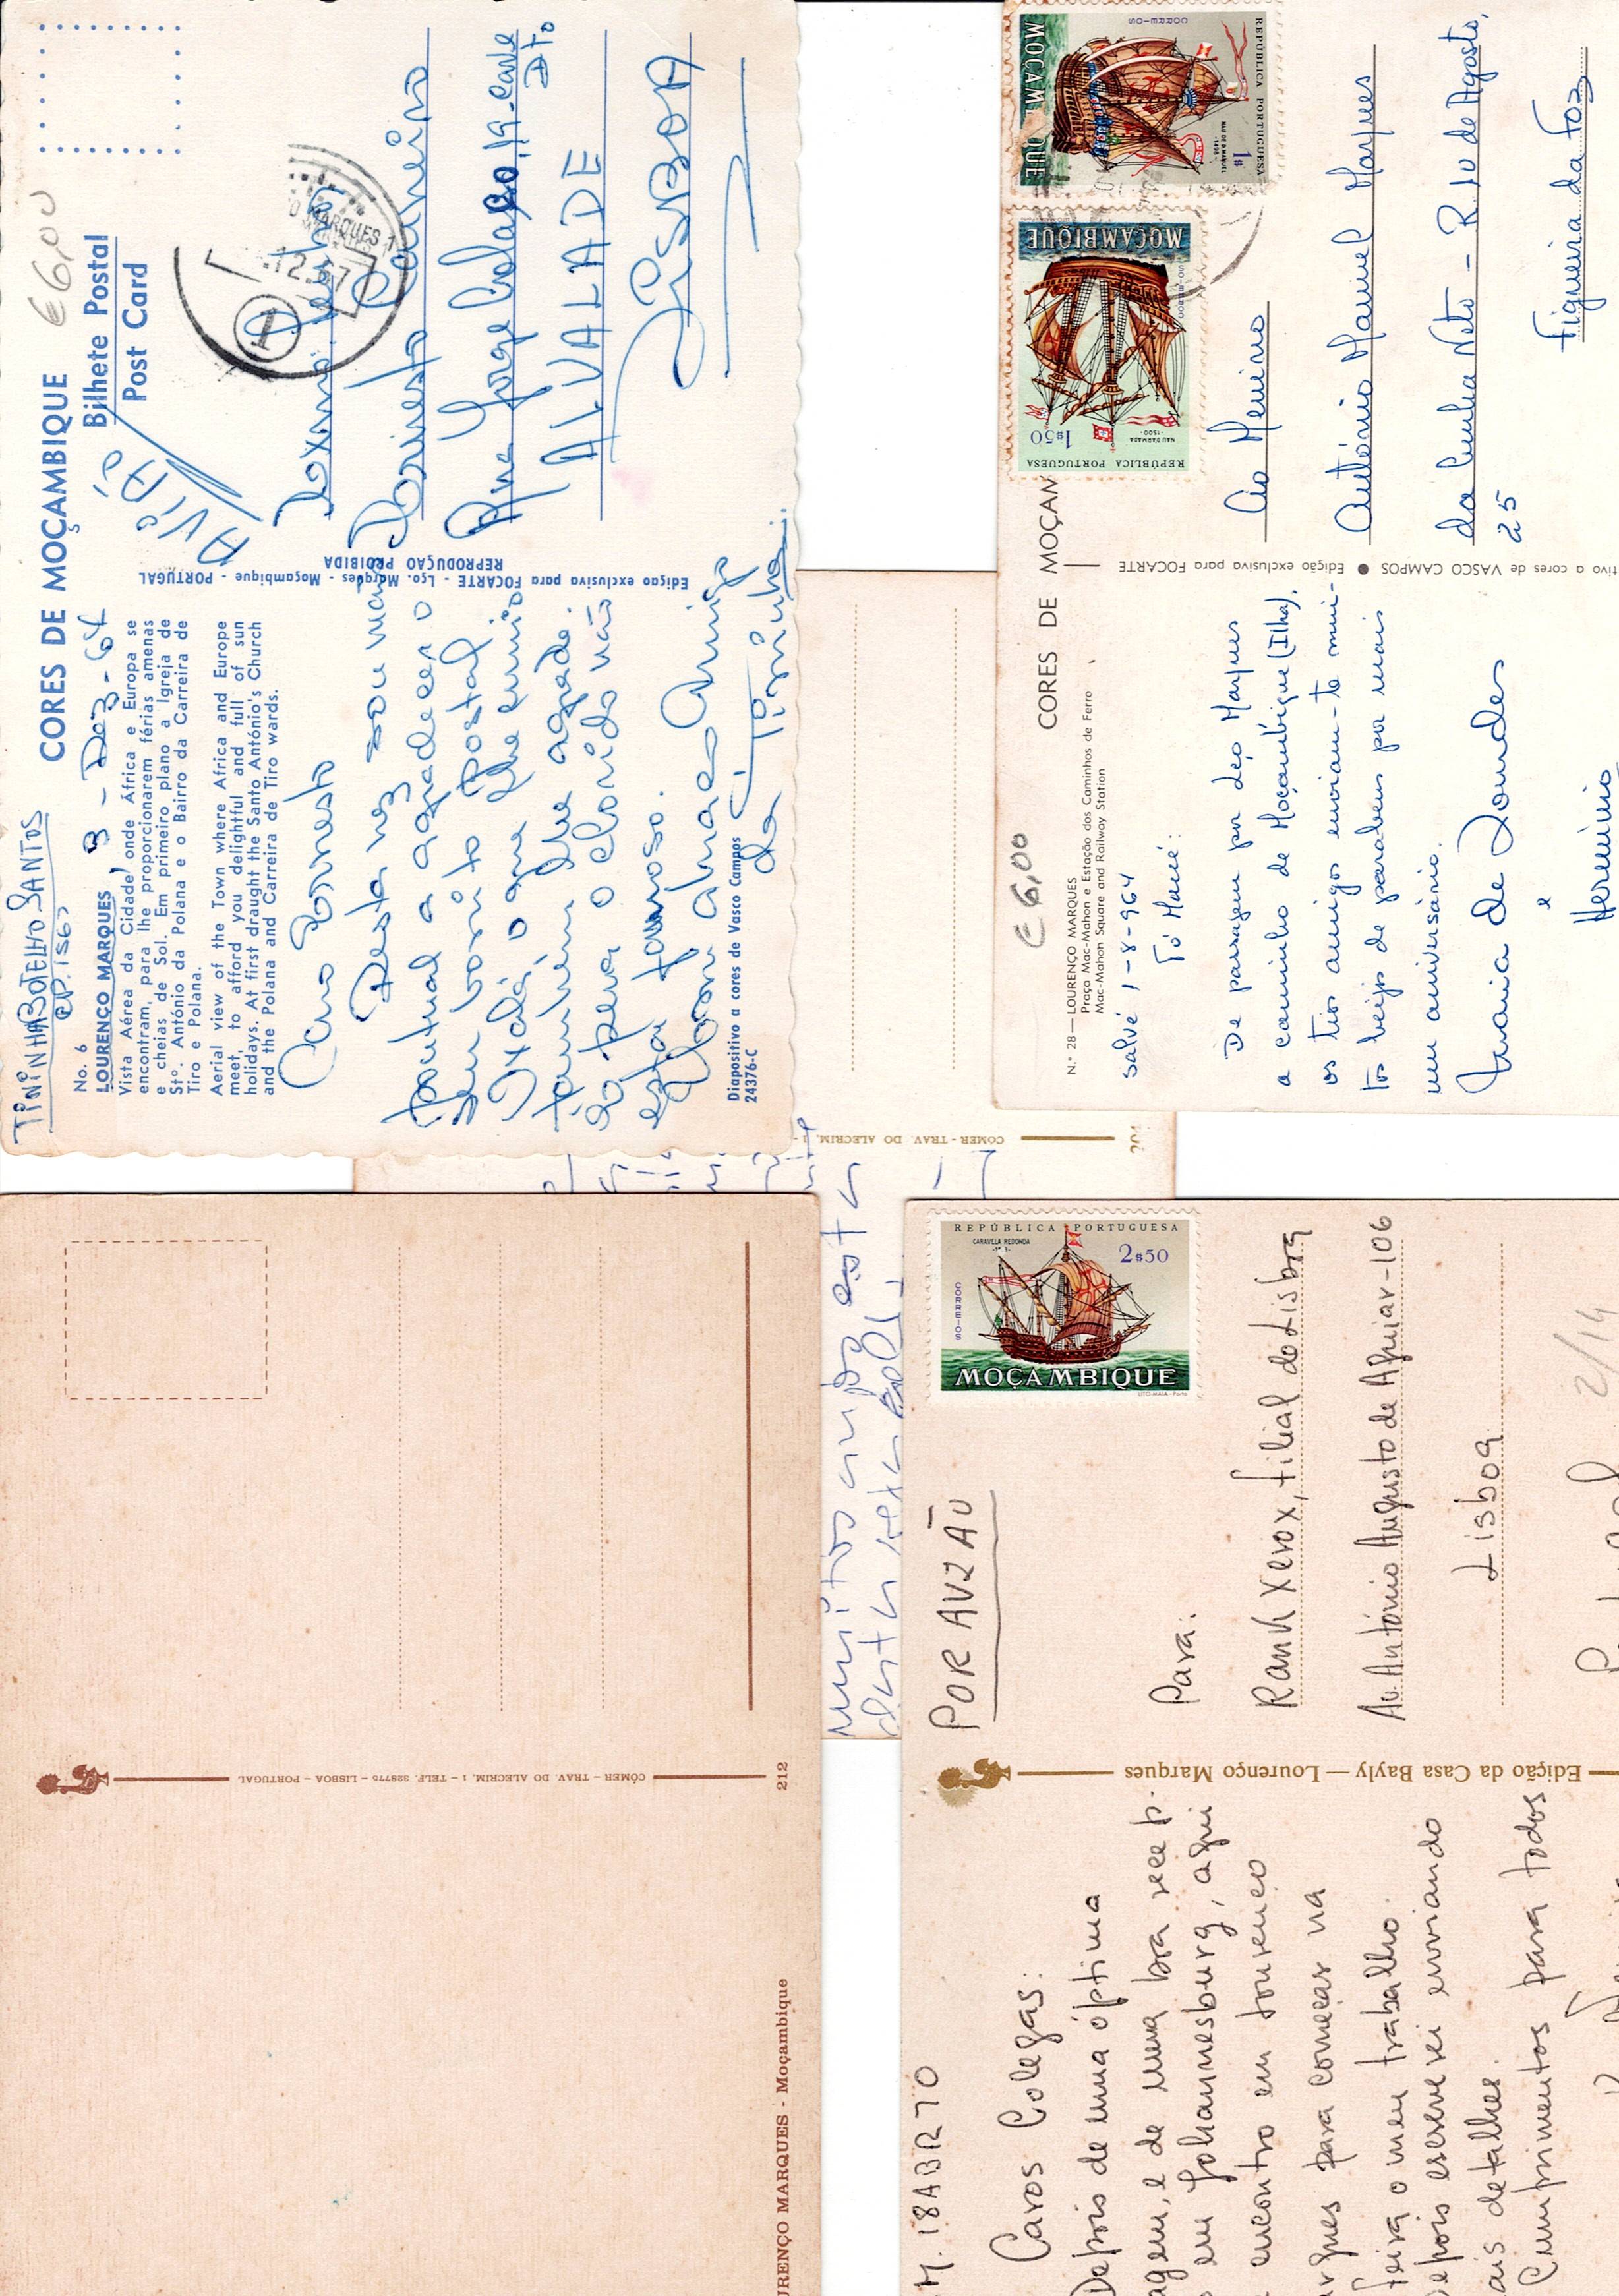 TININHA BOTELHO SANTOS
CORES DE MOÇAMBIQUE
€ 6,00
Bilhete Postal
Post Card
AVIÃO
No. 6
LOURENÇO MARQUES
3 - Dez - 67
Vista Aérea da Cidade, onde África e Europa se
encontram, para lhe proporcionarem férias amenas
e cheias de Sol. Em primeiro plano a Igreja de
Stº. António da Polana e o Bairro da Carreira de
Tiro e Polana.
Aerial view of the Town where Africa and Europe
meet, to afford you delightful and full of sun
holidays. At first draught the Santo António's Church
and the Polana and Carreira de Tiro wards.
Caro Ernesto
Desta vez sou mais
pontual a agradecer o
seu bonito postal.
Oxalá, o que lhe envio
também lhe agrade.
Só pena o colorido não
estar famoso.
Com
Amiga
da Tininha
Diapositivo a cores de Vasco Campos
24376-C
Edição exclusiva para FOCARTE - Lço. Marques - Moçambique - PORTUGAL
REPRODUÇÃO PROIBIDA
MARQUES
Ernesto
Rua Jorge Colaço, 19-cave
Dto
ALVALADE
LISBOA
CORES DE MOÇAM
€ 6,00
N.º 28 — LOURENÇO MARQUES
Praça Mac-Mahon e Estação dos Caminhos de Ferro
Mac-Mahon Square and Railway Station
Salvé 1-8-964
Tó Mané:
De passagem por Lço Marques
a caminho de Moçambique (Ilha),
os tios amigos enviam-te mui-
tos beijos de parabens por mais
um aniversário.
Maria de Lourdes
e
Hermínio
tivo a cores de VASCO CAMPOS ● Edição exclusiva para FOCARTE
REPÚBLICA PORTUGUESA
CORREIOS
1$
MOÇAMBIQUE
REPÚBLICA PORTUGUESA
NAU D'ARMADA
-1500-
1$50
MOÇAMBIQUE
Ao Menino
António Manuel Marques
da Cunha Neto - R. 10 de Agosto,
25
Figueira da Foz
CÓMER - TRAV. DO ALECRIM, 1
204
muitos
esta
CÓMER - TRAV. DO ALECRIM, 1 - TELF. 328775 - LISBOA - PORTUGAL
212
URENÇO MARQUES - Moçambique
REPÚBLICA PORTUGUESA
CARAVELA REDONDA
2$50
CORREIOS
MOÇAMBIQUE
LITO-MAIA-Porto
POR AVIÃO
Para:
Rank Xerox, filial de Lisboa
Av. António Augusto de Aguiar-106
Lisboa
2/14
Edição da Casa Bayly — Lourenço Marques
M. 18 ABR 70
Caros Colegas:
Depois de uma óptima
agem, e de uma boa recep.
em Johannesburg, aqui
encontro em Lourenço
rques para começar na
feira o meu trabalho.
epois escreverei enviando
ais detalhes.
Cumprimentos para todos